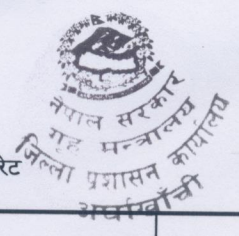 नेपाल सरकार
गृह मन्त्रालय
जिल्ला प्रशासन कार्यालय
अर्घाखाँची
रेट